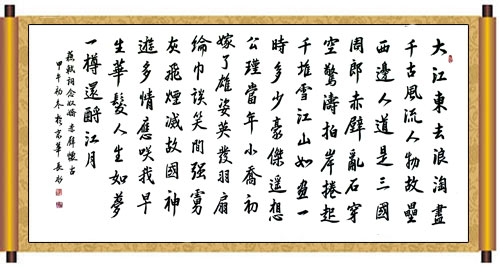 大江東去浪淘盡
千古風流人物故壘
西邊人道是三國
周郎赤壁亂石穿
空驚濤拍岸捲起
千堆雪江山如畫一
時多少豪傑遥想
公瑾當年小喬初
嫁了雄姿英發羽扇
綸巾談笑間强虜
灰飛煙滅故國神
遊多情應咲我早
生華髮人生如夢
一樽還酹江月
蘇軾詞念奴嬌赤壁懷古
甲午初冬於京華